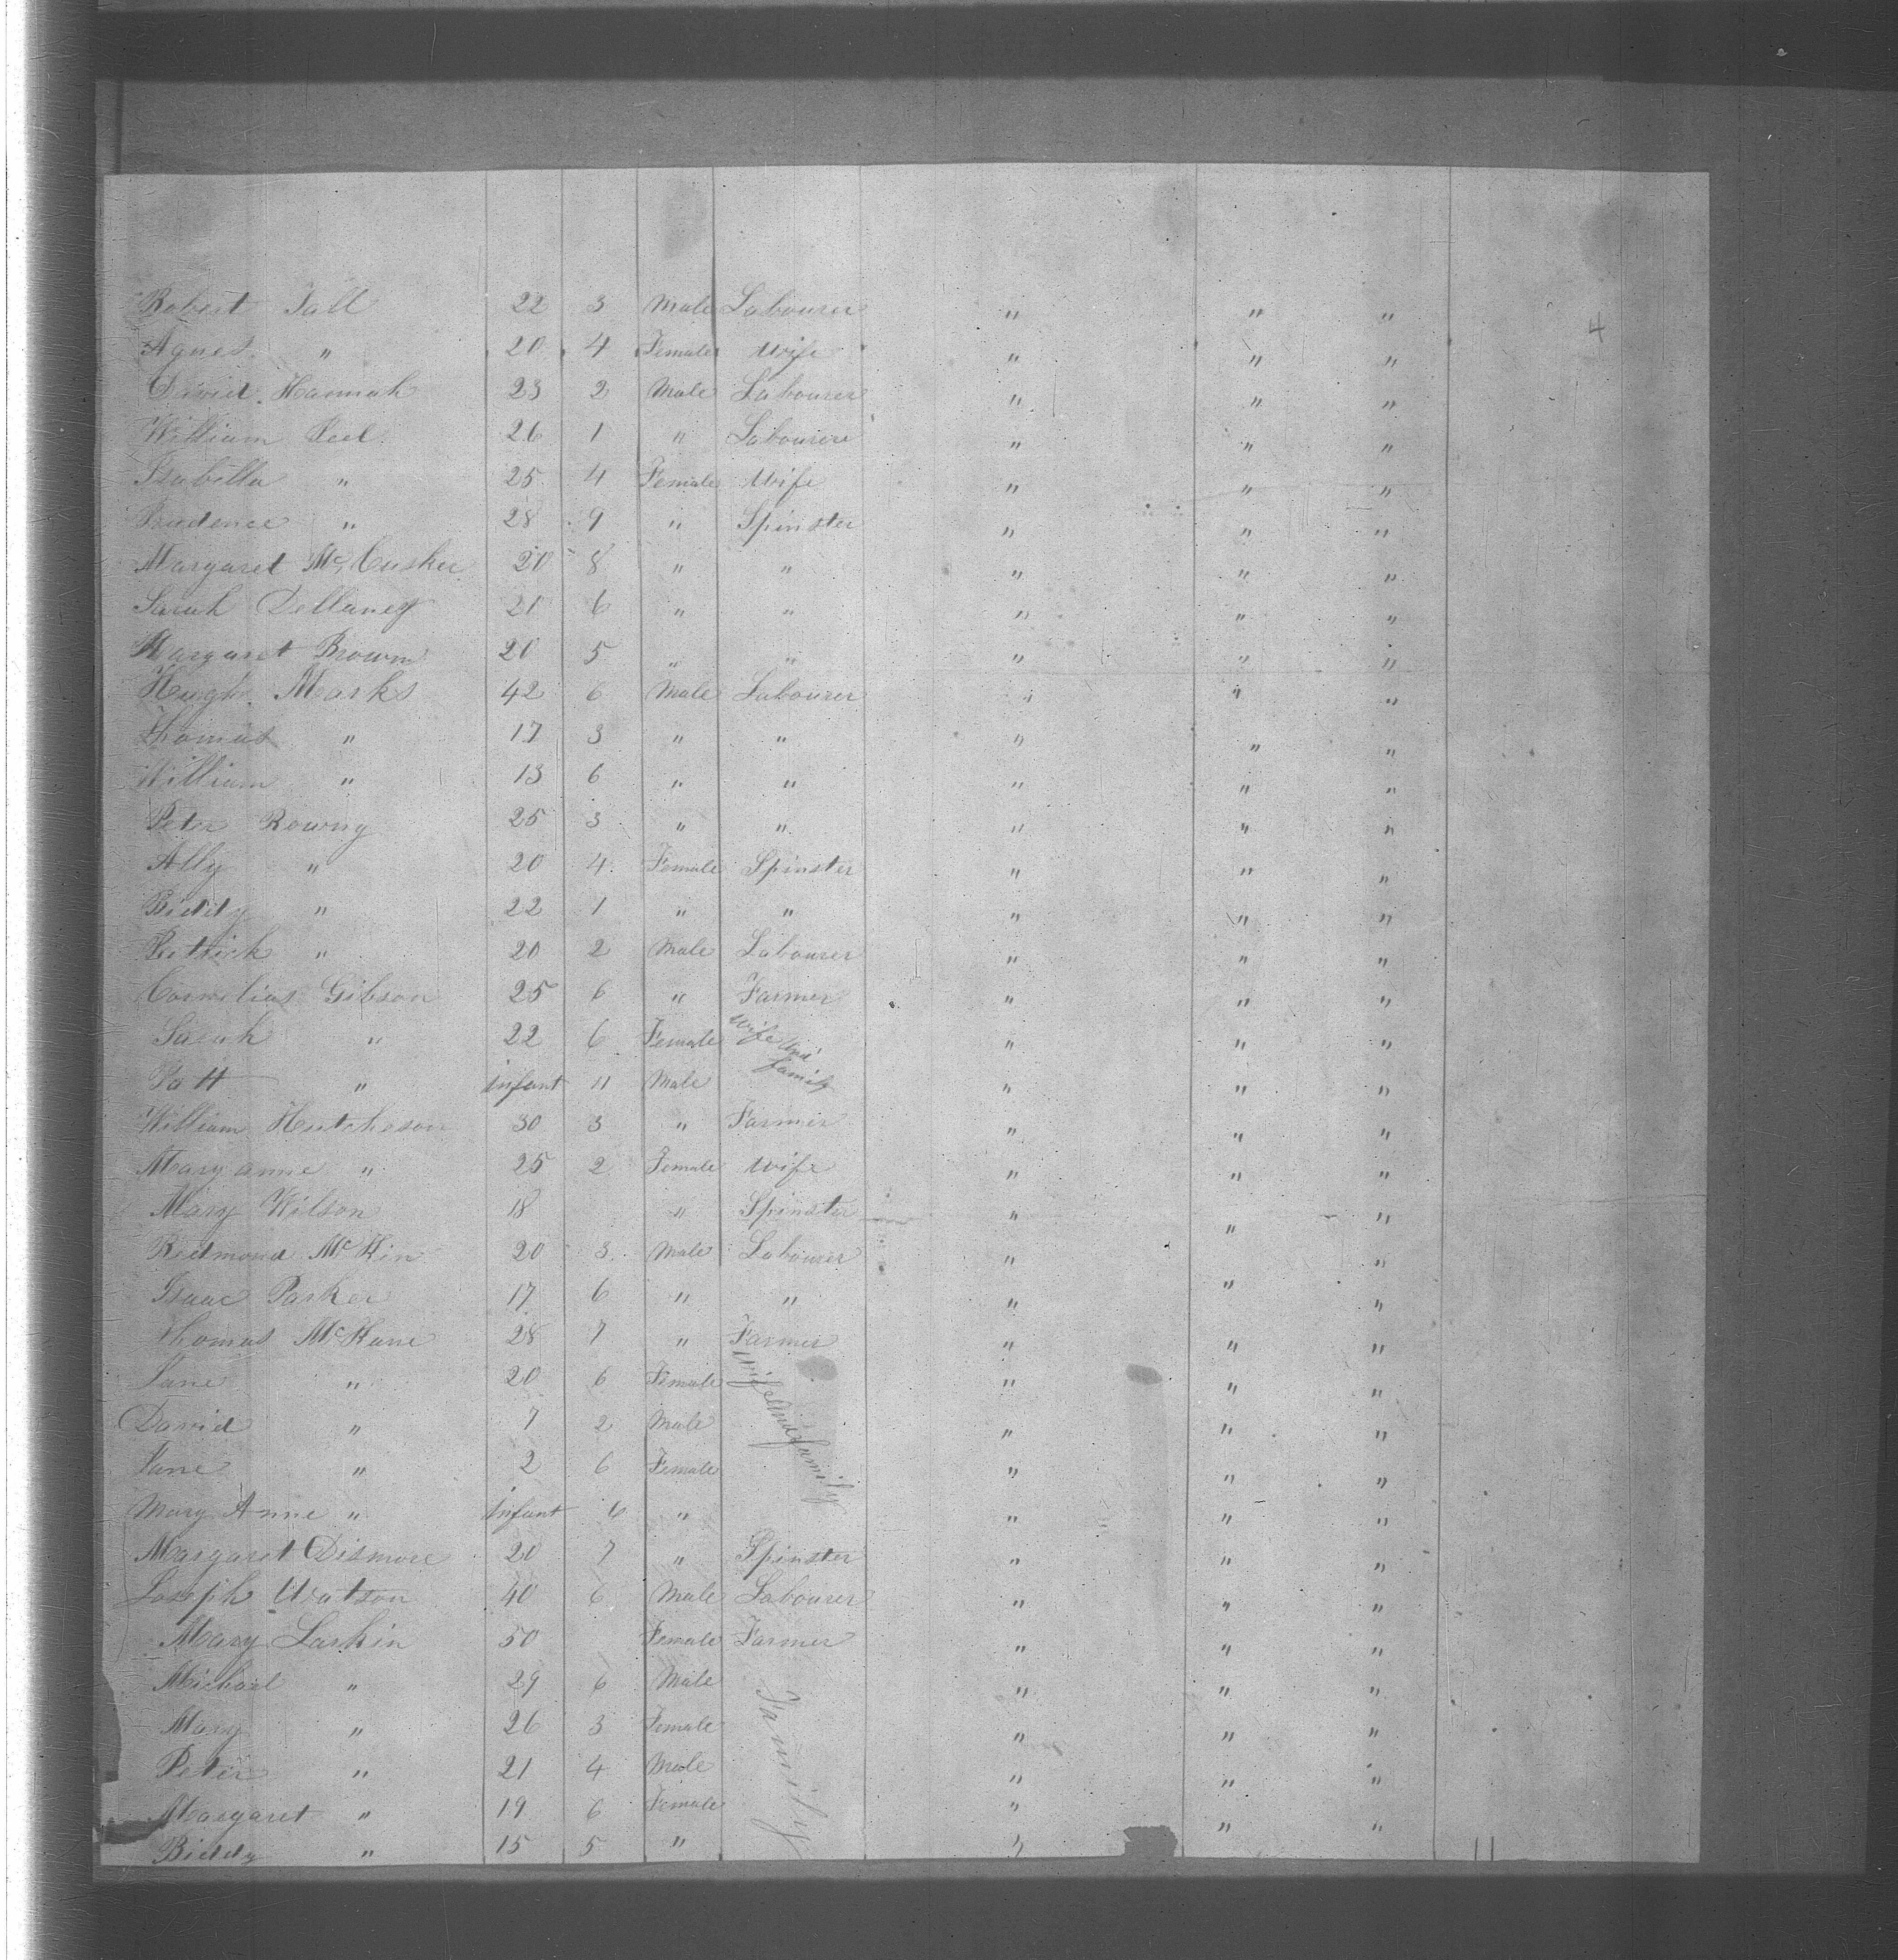 4
Robert Tall 22 3 Male Labourer " " "
Agnes " 20 4 Female Wife " " "
David Hannah 23 2 Male Labourer " " "
William Peel 26 1 " Labourer " " "
Isabella " 25 4 Female Wife " " "
Prudence " 28 9 " Spinster " " "
Margaret Mc Cusker 20 8 " " " " "
Sarah Dellaney 21 6 " " " " "
Margaret Brown 20 5 " " " " "
Hugh Marks 42 6 Male Labourer " " "
Thomas " 17 3 " " " " "
William " 13 6 " " " " "
Peter Rowny 25 3 " " " " "
Ally " 20 4 Female Spinster " " "
Biddy " 22 1 " " " " "
Patrick " 20 2 Male Labourer " " "
Cornelius Gibson 25 6 " Farmer " " "
Sarah " 22 6 Female Wife and family " " "
Patt " infant 11 Male " " "
William Hutcheson 30 3 " Farmer " " "
Mary anne " 25 2 Female Wife " " "
Mary Wilson 18 " Spinster " " "
Redmond McKin 20 3 Male Labourer " " "
Isaac Parker 17 6 " " " " "
Thomas McKane 28 7 " Farmer " " "
Jane " 20 6 Female Wife and family " " "
David " 7 2 Male " " "
Jane " 2 6 Female " " "
Mary Anne " infant 6 " " " "
Margaret Dismore 20 7 " Spinster " " "
Joseph Watson 40 6 Male Labourer " " "
Mary Larkin 50 Female Farmer " " "
Michael " 29 6 Male Family " " "
Mary " 26 3 Female " " "
Peter " 21 4 Male " " "
Margaret " 19 6 Female " " "
Biddy " 15 5 " "